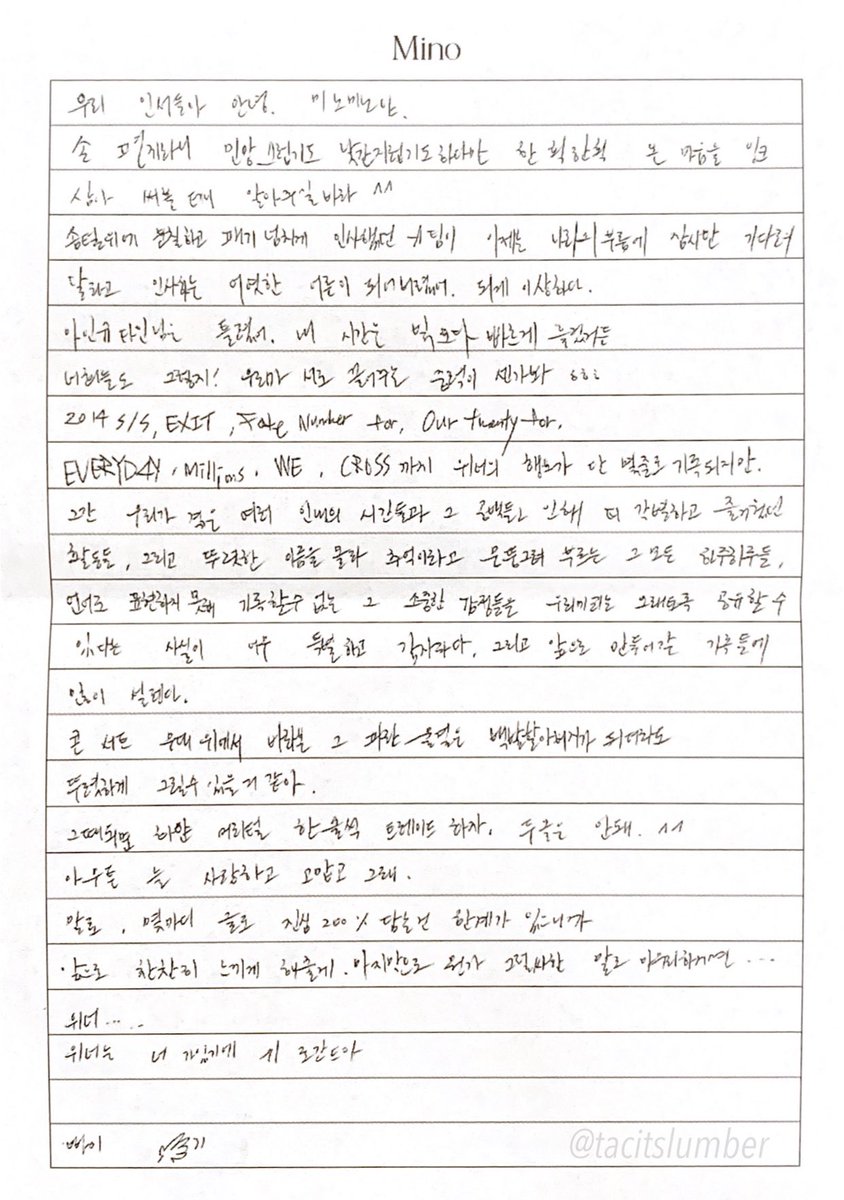 Mino
우리 인서들아 안녕. 미노미노난.
손 편지라서 민망스럽기도 낯간지럽기도하다만 한 획 한획 본 마음을 잉크
삼아 써볼 테니 알아주실바라 ^^
솜털위에 분칠하고 패기 넘치게 인사했던 팀이 이제는 나라의 부름에 잠시만 기다려
달라고 인사하는 어엿한 어른이 되어버렸어. 되게 이상하다.
아인슈타인님은 틀렸어. 내 시간은 빛보다 빠르게 흘렀거든
너희들도 그렇지! 우리가 서로 끌어주는 중력이 센가봐
2014 S/S, EXIT, Fate Number for, Our twenty for,
EVERYD4Y, Millions, WE, CROSS까지 위너의 행보가 단 몇줄로 기록되지만.
그간 우리가 겪은 여러 인내의 시간들과 그 공백들로 인해 더 각별하고 즐거웠던
활동들, 그리고 뚜렷한 이름을 몰라 추억이라고 뭉뚱그려 부르는 그 모든 하루하루들,
언어로 표현하지 못해 기록할수 없는 그 소중한 감정들을 우리끼리는 오래토록 공유할 수
있다는 사실이 너무 특별하고 감사하다. 그리고 앞으로 만들어갈 기록들에
많이 설렌다.
콘서트 무대 위에서 바라본 그 파란 물결은 백발할아버지가 되더라도
뚜렷하게 그릴수 있을거 같아.
그때되면 하얀 머리털 한 움씩 트레이드 하자. 두글은 안돼. ^^
아무튼 늘 사랑하고 고맙고 그래.
말로, 몇가디 글로 진심 200% 담을건 한계가 있으니까
앞으로 찬찬히 느끼게 해줄게. 마지막으로 뭔가 그럴싸한 말로 마무리하자면 ...
위너.....
위너는 너 가있기에
@tacitslumber